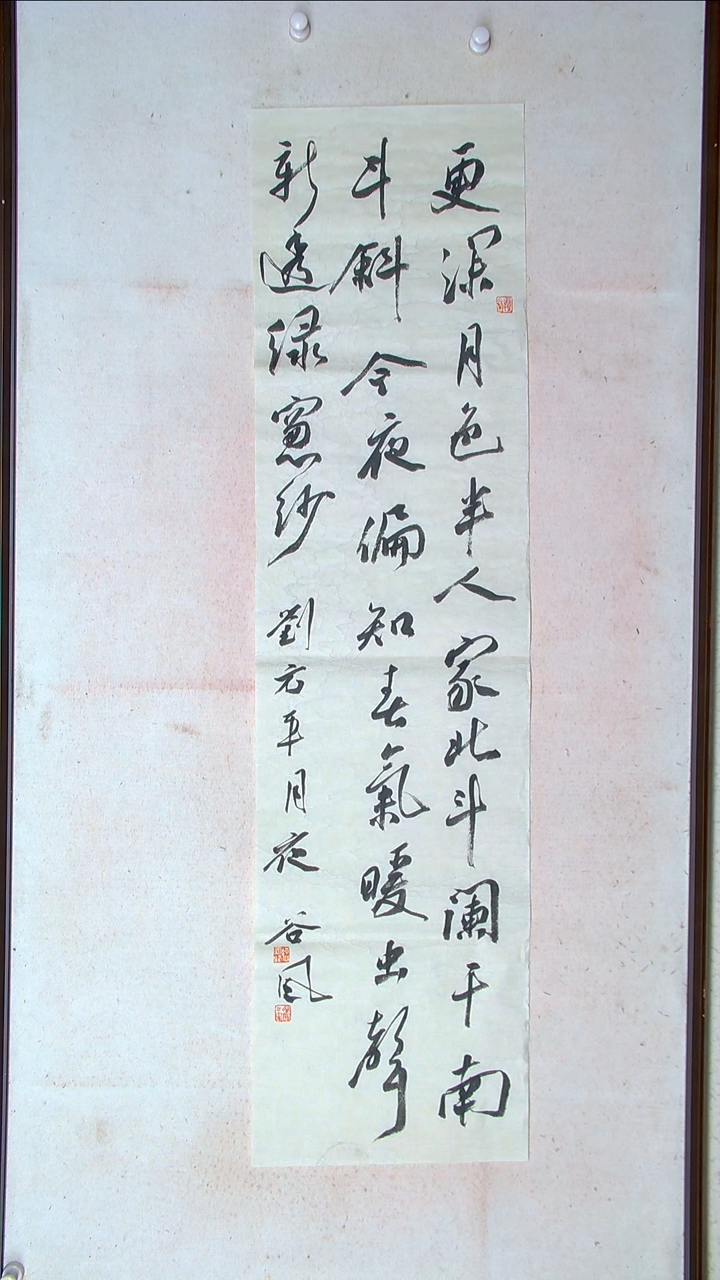 更深月色半人家北斗阑干南
斗斜今夜偏知春氣暖虫聲
新透绿窗纱 劉方平月夜 谷风